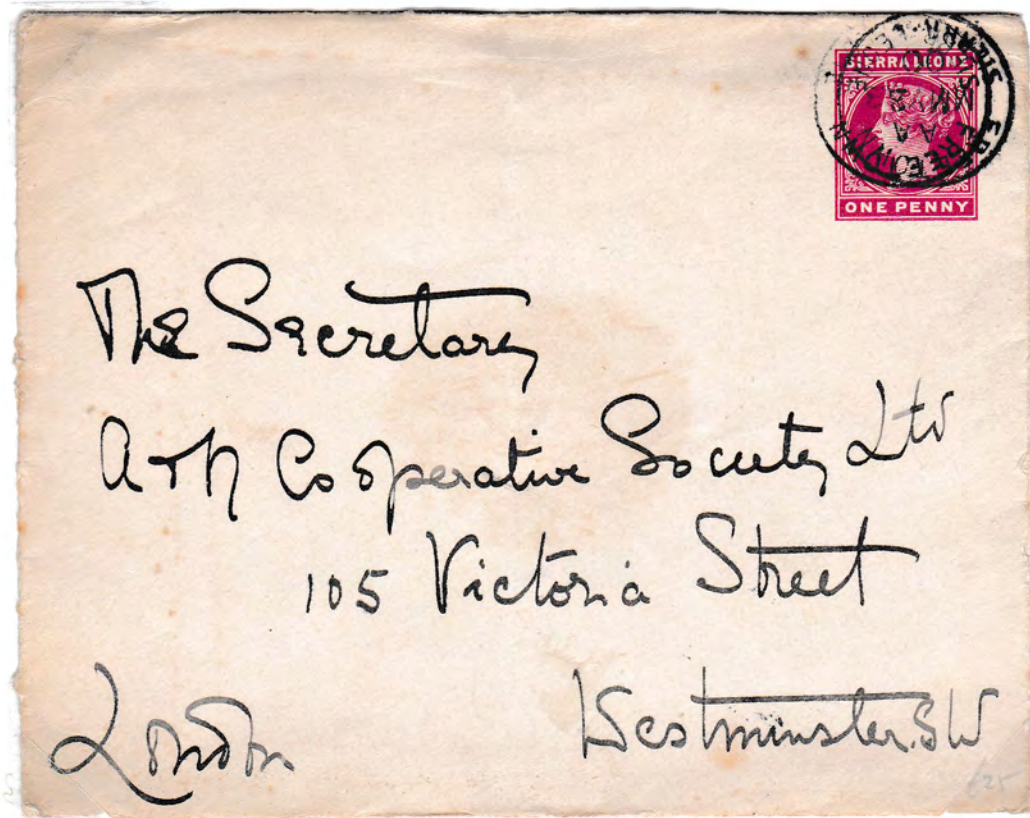 SIERRA LEONE
ONE PENNY
FREETOWN
SIERRA LEONE
The Secretary
A & N Cooperative Society Ltd
105 Victoria Street
London Westminster. SW
£25